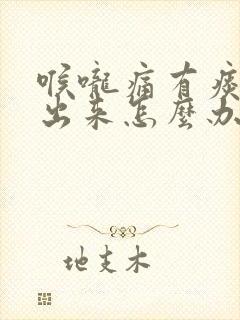 喉嚨痛有痰
出来怎麼办
地支木